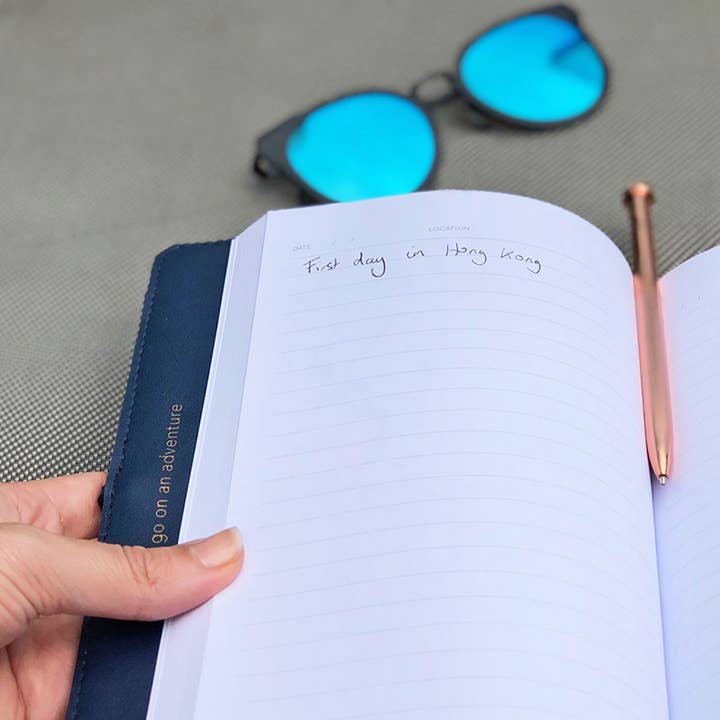 DATE / / LOCATION
First day in Hong Kong
go on an adventure